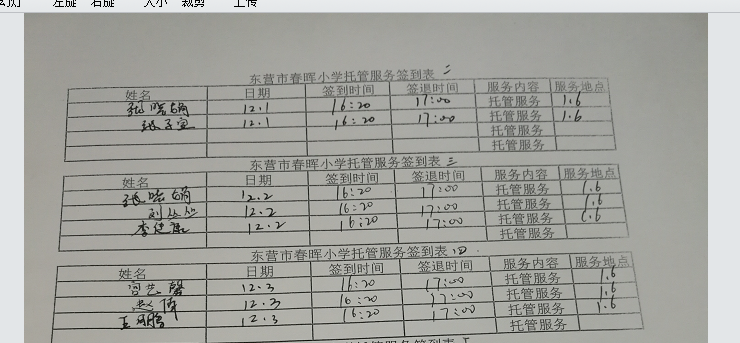 左旋 右旋 大小 裁剪 上传
东营市春晖小学托管服务签到表 二
姓名 日期 签到时间 签退时间 服务内容 服务地点
12.1 16:20 17:00 托管服务 1.6
张子宜 12.1 16:20 17:00 托管服务 1.6
托管服务
托管服务
东营市春晖小学托管服务签到表 三
姓名 日期 签到时间 签退时间 服务内容 服务地点
12.2 16:20 17:00 托管服务 1.6
刘丛丛 12.2 16:20 17:00 托管服务 1.6
12.2 16:20 17:00 托管服务 1.6
托管服务
东营市春晖小学托管服务签到表 四
姓名 日期 签到时间 签退时间 服务内容 服务地点
12.3 16:20 17:00 托管服务 1.6
赵倩 12.3 16:20 17:00 托管服务 1.6
12.3 16:20 17:00 托管服务 1.6
托管服务